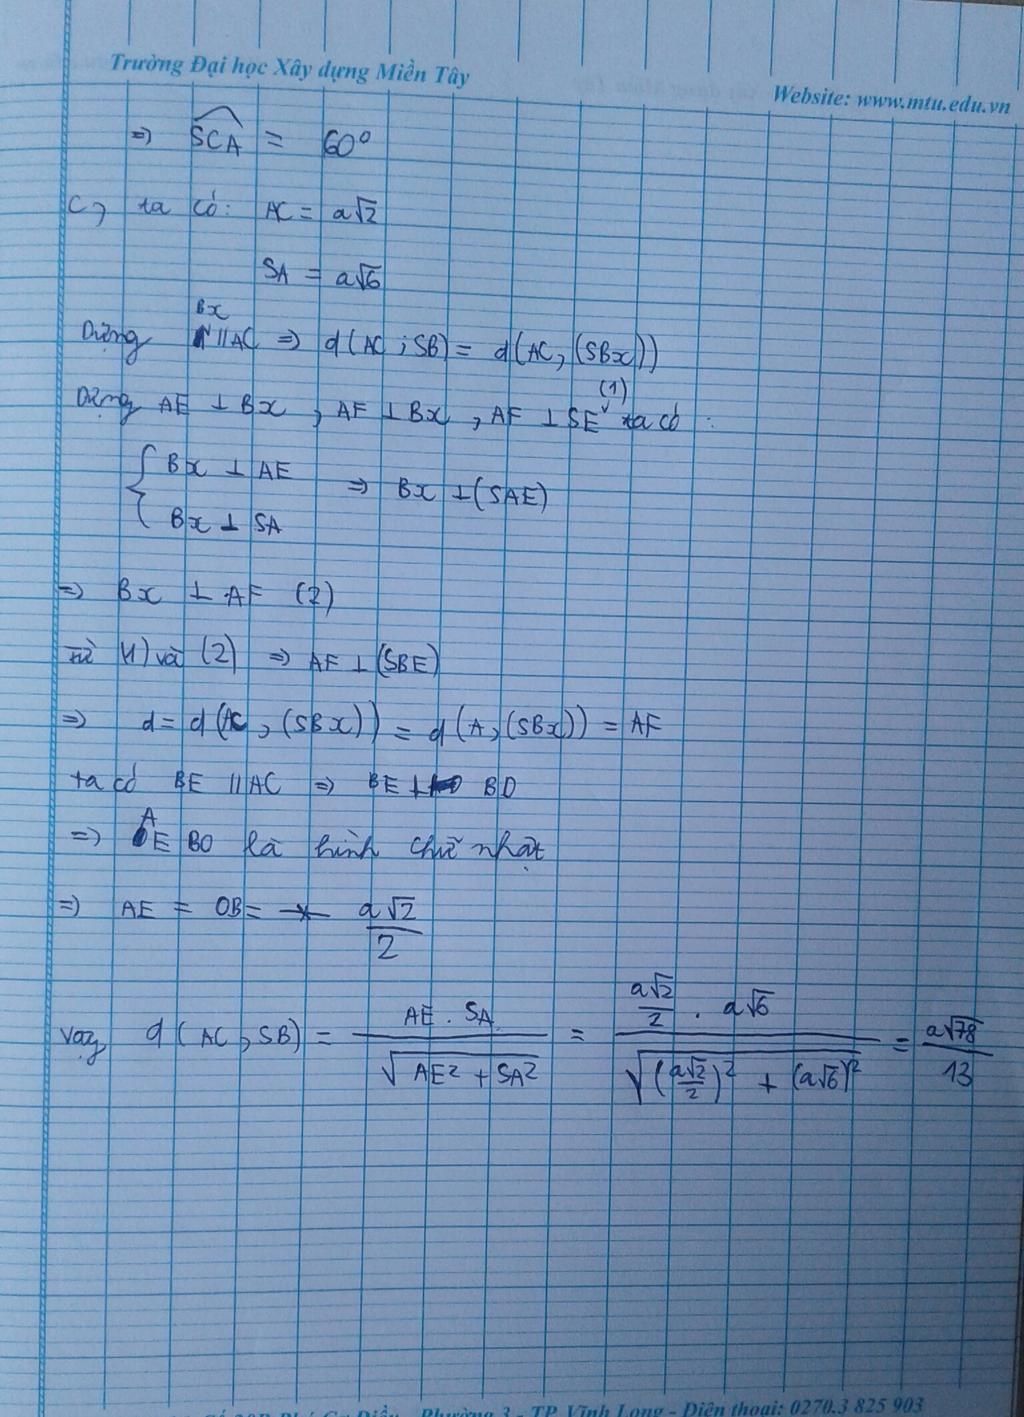 Trường Đại học Xây dựng Miền Tây
Website: www.mtu.edu.vn
=> SCA = 60°
c, ta có: AC = a√2
SA = a√6
Dựng Bx // AC => d(AC ; SB) = d(AC, (SBx))
Dựng AE ⊥ Bx , AF ⊥ Bx , AF ⊥ SE (1) ta có :
{ Bx ⊥ AE
Bx ⊥ SA => Bx ⊥ (SAE)
=> Bx ⊥ AF (2)
từ (1) và (2) => AF ⊥ (SBE)
=> d = d(AC, (SBx)) = d(A, (SBx)) = AF
ta có BE // AC => BE ⊥ BD
=> AEBO là hình chữ nhật
=> AE = OB = a√2/2
vậy d(AC, SB) = AE . SA / √(AE² + SA²) = (a√2/2 . a√6) / √((a√2/2)² + (a√6)²) = a√78/13
Phường 3 - TP. Vĩnh Long - Điện thoại: 0270.3 825 903